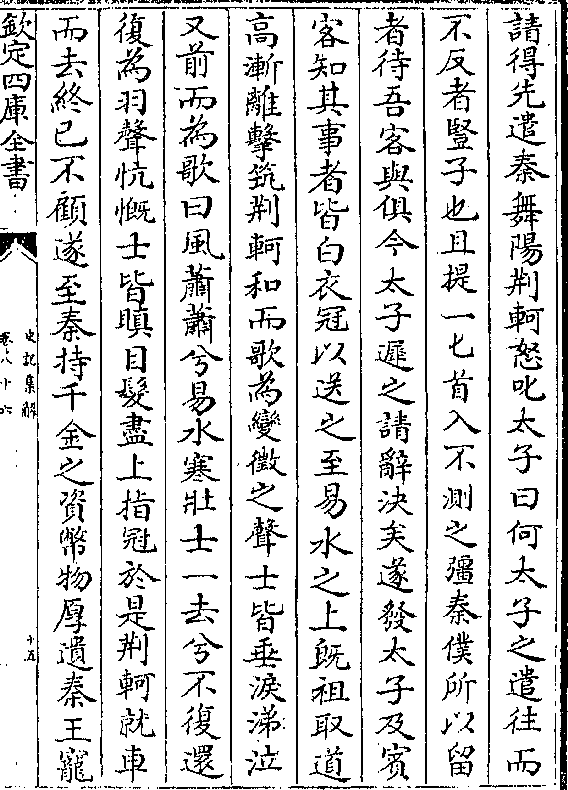 請得先遣秦舞陽荆軻怒叱太子曰何太子之遣往而
不反者豎子也且提一匕首入不測之彊秦僕所以留
者待吾客與俱今太子遲之請辭決矣遂發太子及賓
客知其事者皆白衣冠以送之至易水之上既祖取道
高漸離擊筑荆軻和而歌為變徵之聲士皆垂淚涕泣
又前而為歌曰風蕭蕭兮易水寒壯士一去兮不復還
復為羽聲忼慨士皆瞋目髮盡上指冠於是荆軻就車
而去終已不顧遂至秦持千金之資幣物厚遺秦王寵
欽定四庫全書
史記集解
卷八十六
十五